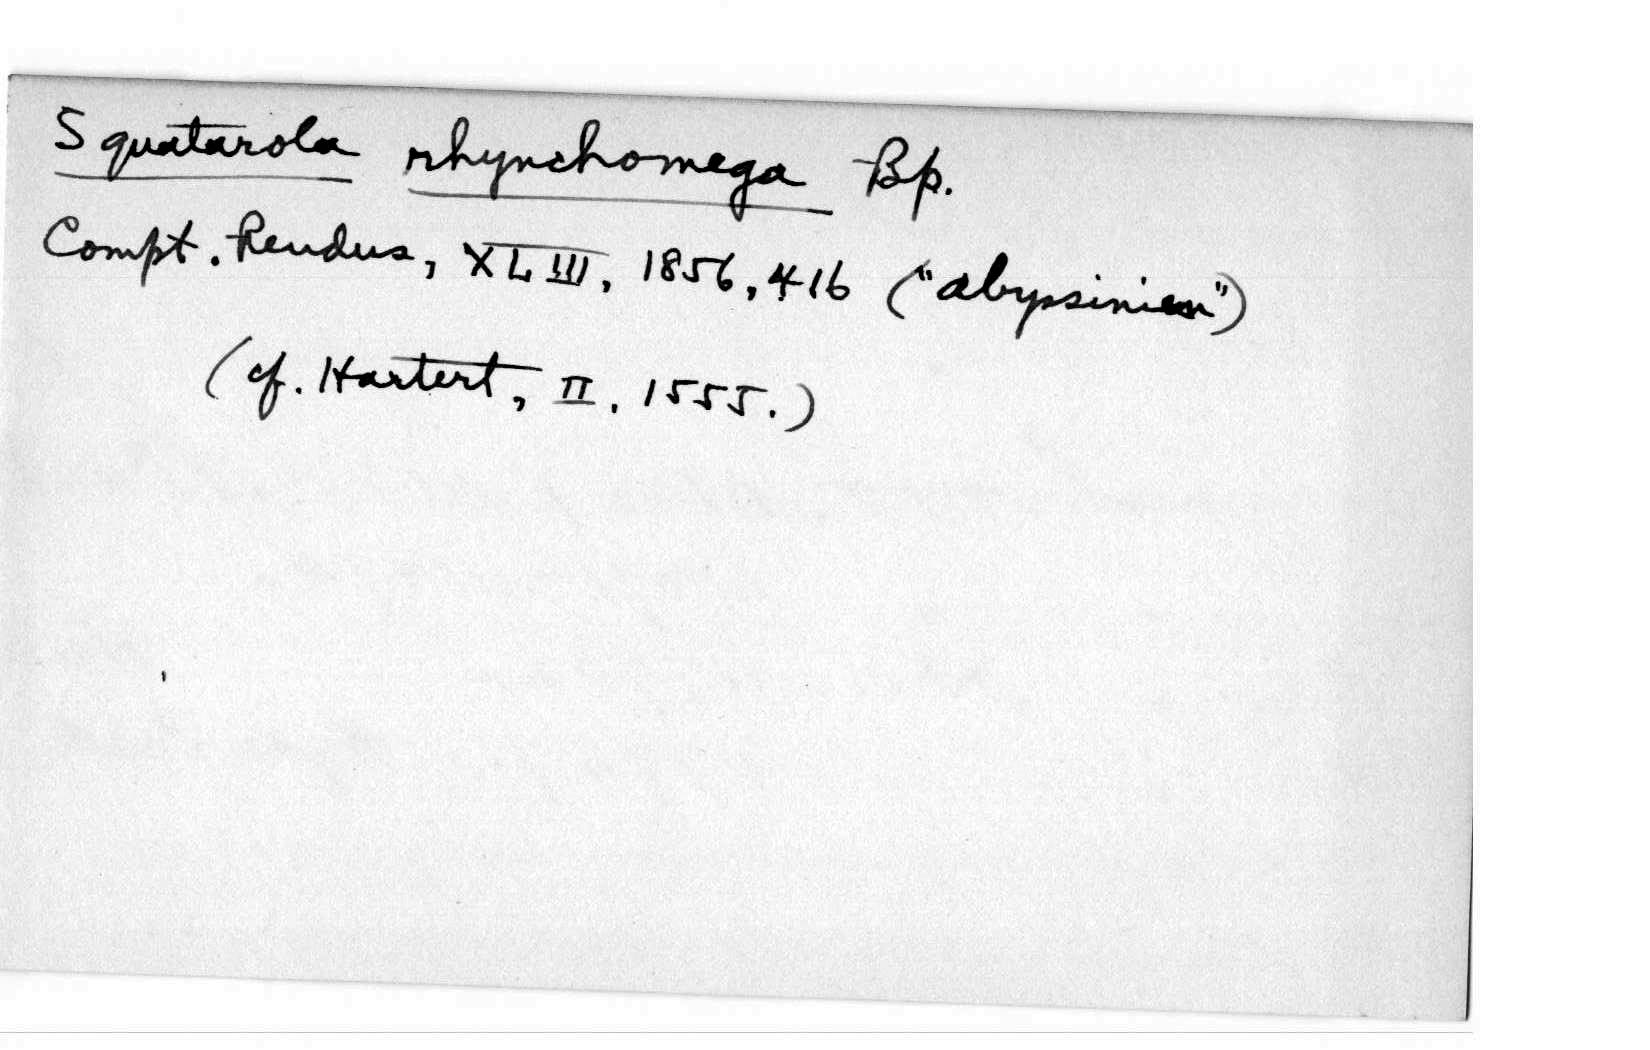 Squatarola rhynchomega Bp.
Compt. Rendus, XLIII, 1856, 416 ("abyssinien")
(cf. Hartert, II, 1555.)